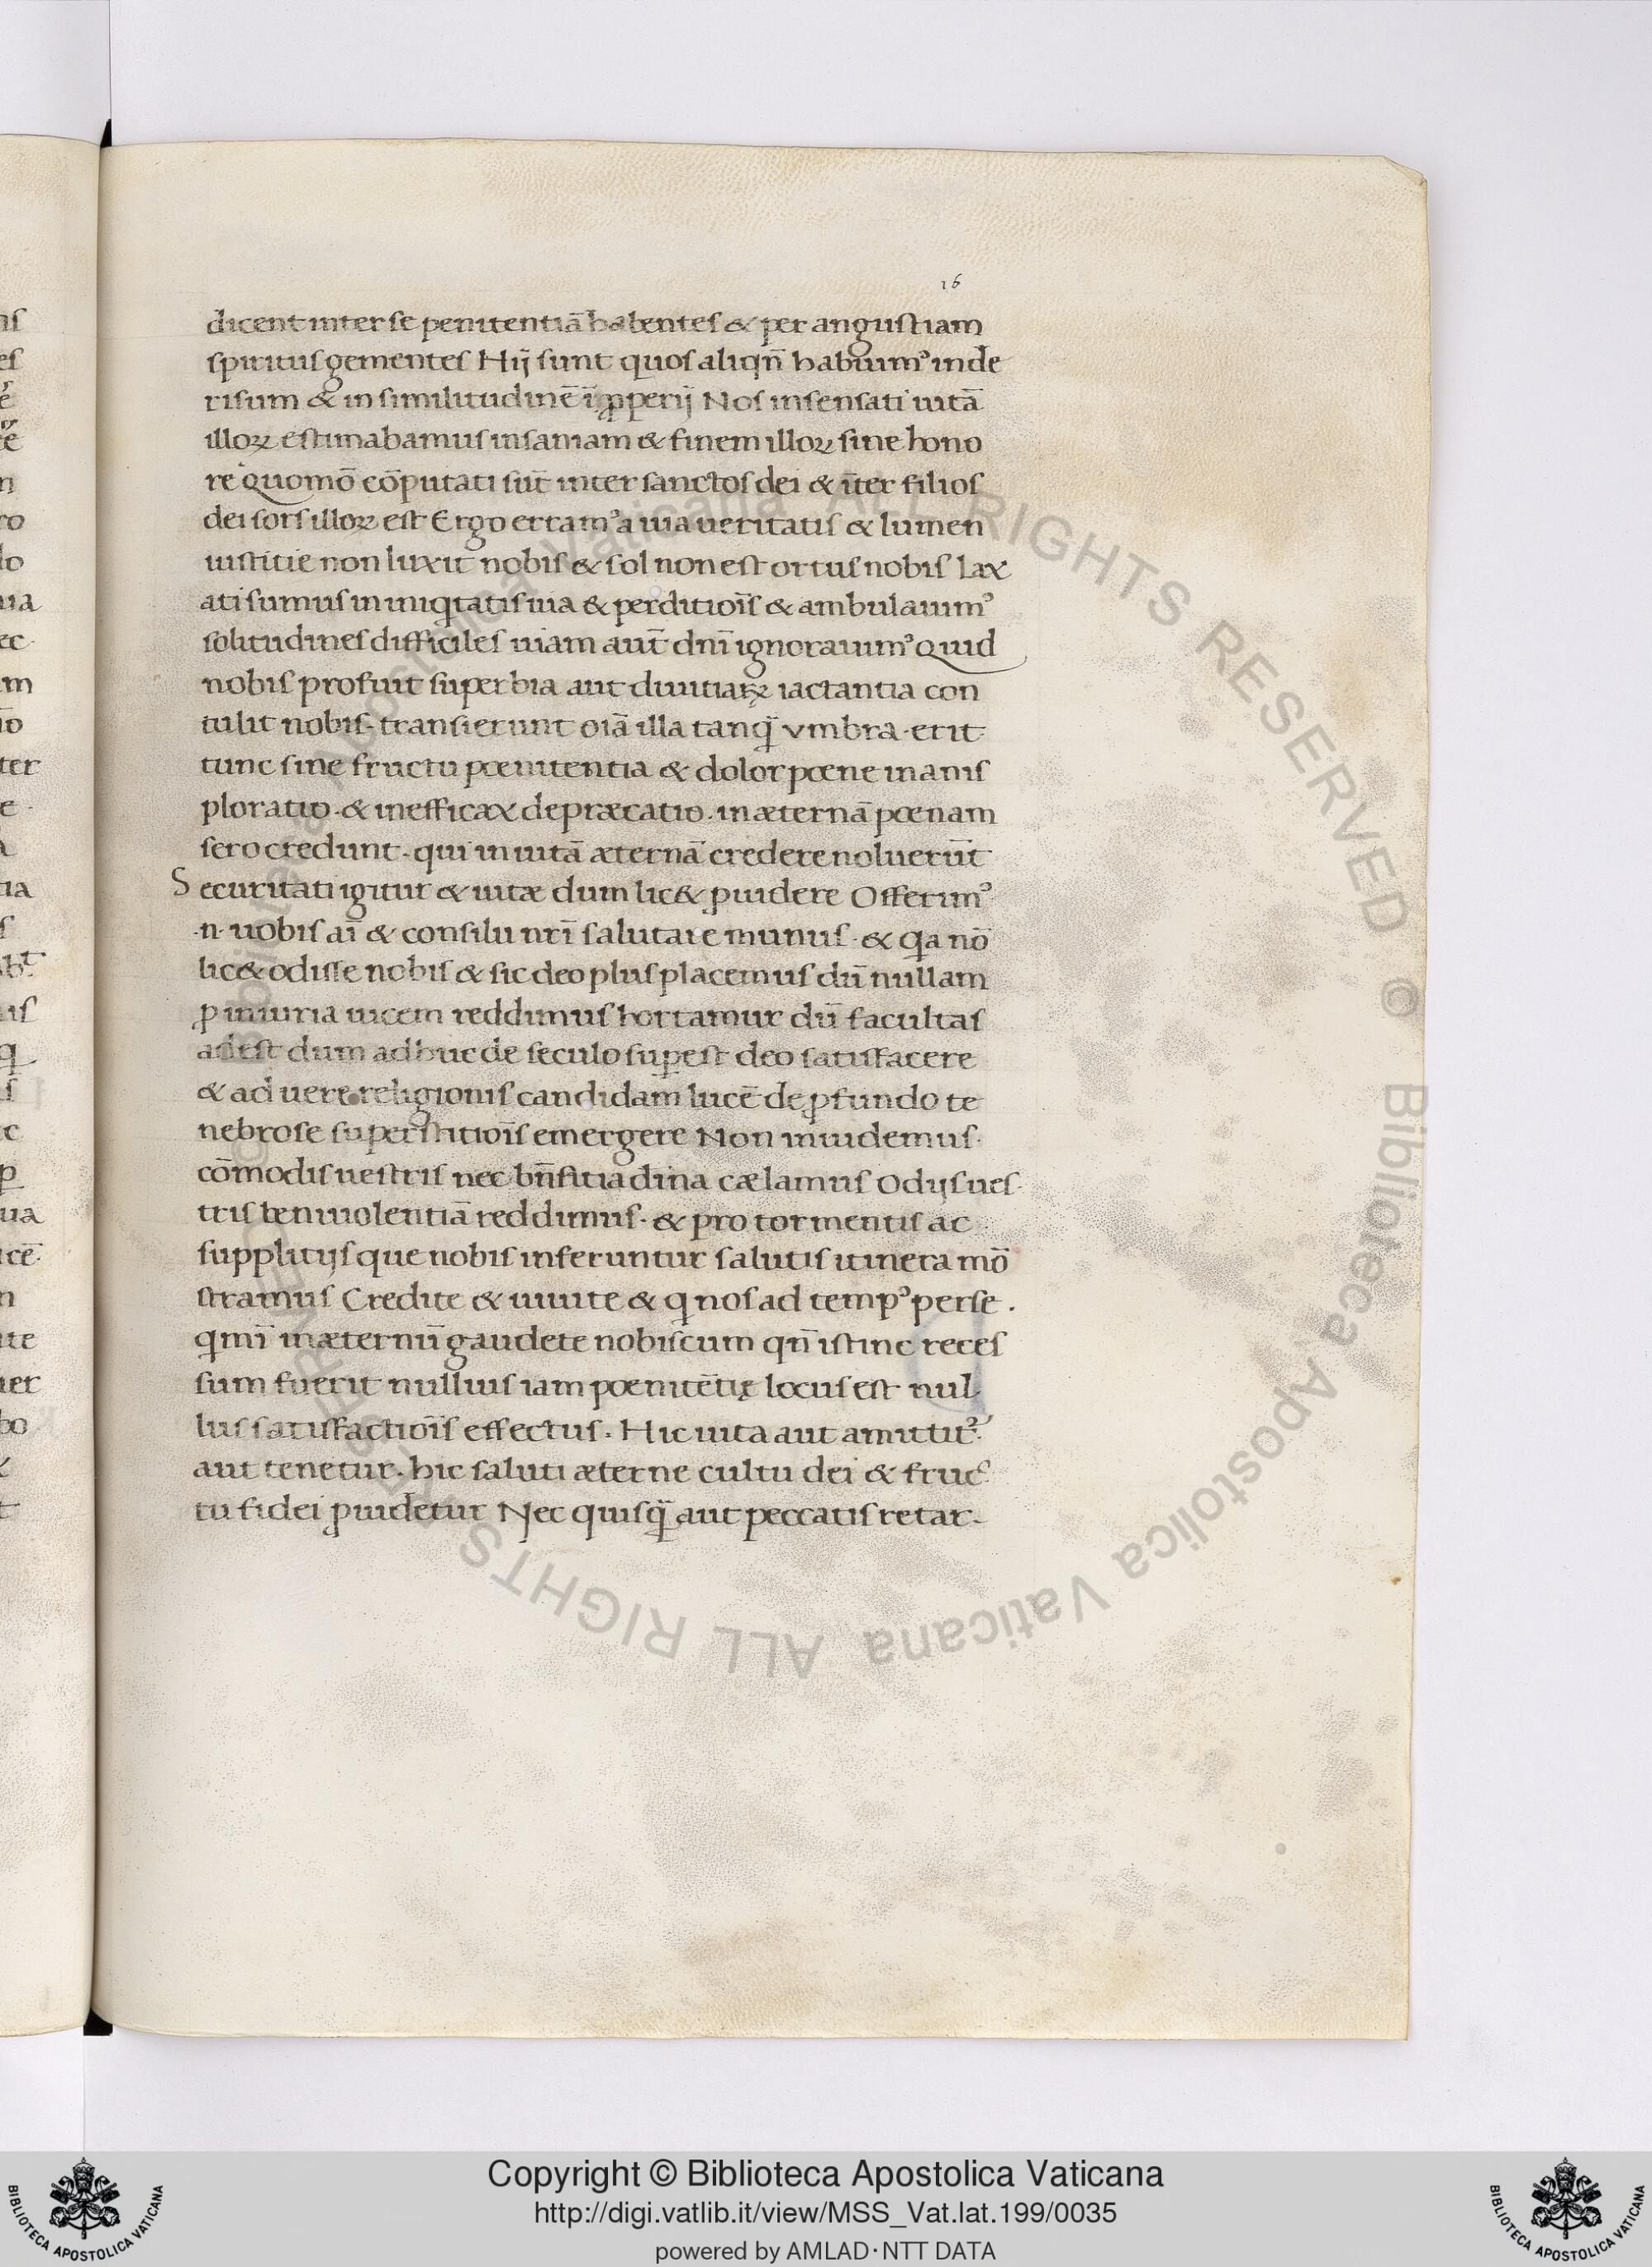 16
dicent inter se penitentiā habentes & per angustiam
spiritus gementes Hij sunt quos aliqn̄ habuimꝰ inde
risum & in similitudinē īꝓperij Nos insensati uitā
illoꝝ estimabamus insaniam & finem illoꝝ sine hono
re Quomō cōputati sūt inter sanctos dei & īter filios
dei sors illoꝝ est Ergo erramꝰ a uia ueritatis & lumen
iustitie non luxit nobis & sol non est ortus nobis Lax
ati sumus in iniqtatis uia & perditiōis & ambulauimꝰ
solitudines difficiles uiam aut̄ dnī ignorauimꝰ Quid
nobis profuit superbia aut diuitiaꝝ iactantia con
tulit nobis. transierunt oīa illa tanq̄ vmbra. erit
tunc sine fructu pœnitentia & dolor pœne inanis
ploratio. & inefficax depræcatio. in æternā pœnam
sero credunt. qui in uitā æternā credere noluerūt
Securitati igitur & uitæ dum lic& ꝓuidere Offerimꝰ
.n. uobis aī & consilii nrī salutare munus. & qa nō
lic& odisse nobis & sic deo plus placemus dū nullam
ꝓ iniuria uicem reddimus hortamur dū facultas
adest dum adhuc de seculo suꝑest deo satisfacere
& ad uere religionis candidam lucē de ꝓfundo te
nebrose superstitiōis emergere Non inuidemus.
cōmodis uestris nec bn̄fitia dina cælamus Odijs ues
tris beniuolentiā reddimus. & pro tormentis ac
supplitijs que nobis inferuntur salutis itinera mō
stramus Credite & uiuite & q nos ad tempꝰ perse.
qmī in æternū gaudete nobiscum qn̄ istinc reces
sum fuerit nullius iam poenitētię locus est nul
lus satisfactiōis effectus. Hic uita aut amittitꝰ.
aut tenetur. hic saluti æterne cultu dei & fruc
tu fidei ꝓuidetur Nec quisq̄ aut peccatis retar.
Copyright © Biblioteca Apostolica Vaticana
http://digi.vatlib.it/view/MSS_Vat.lat.199/0035
powered by AMLAD·NTT DATA
BIBLIOTECA APOSTOLICA VATICANA
BIBLIOTECA APOSTOLICA VATICANA